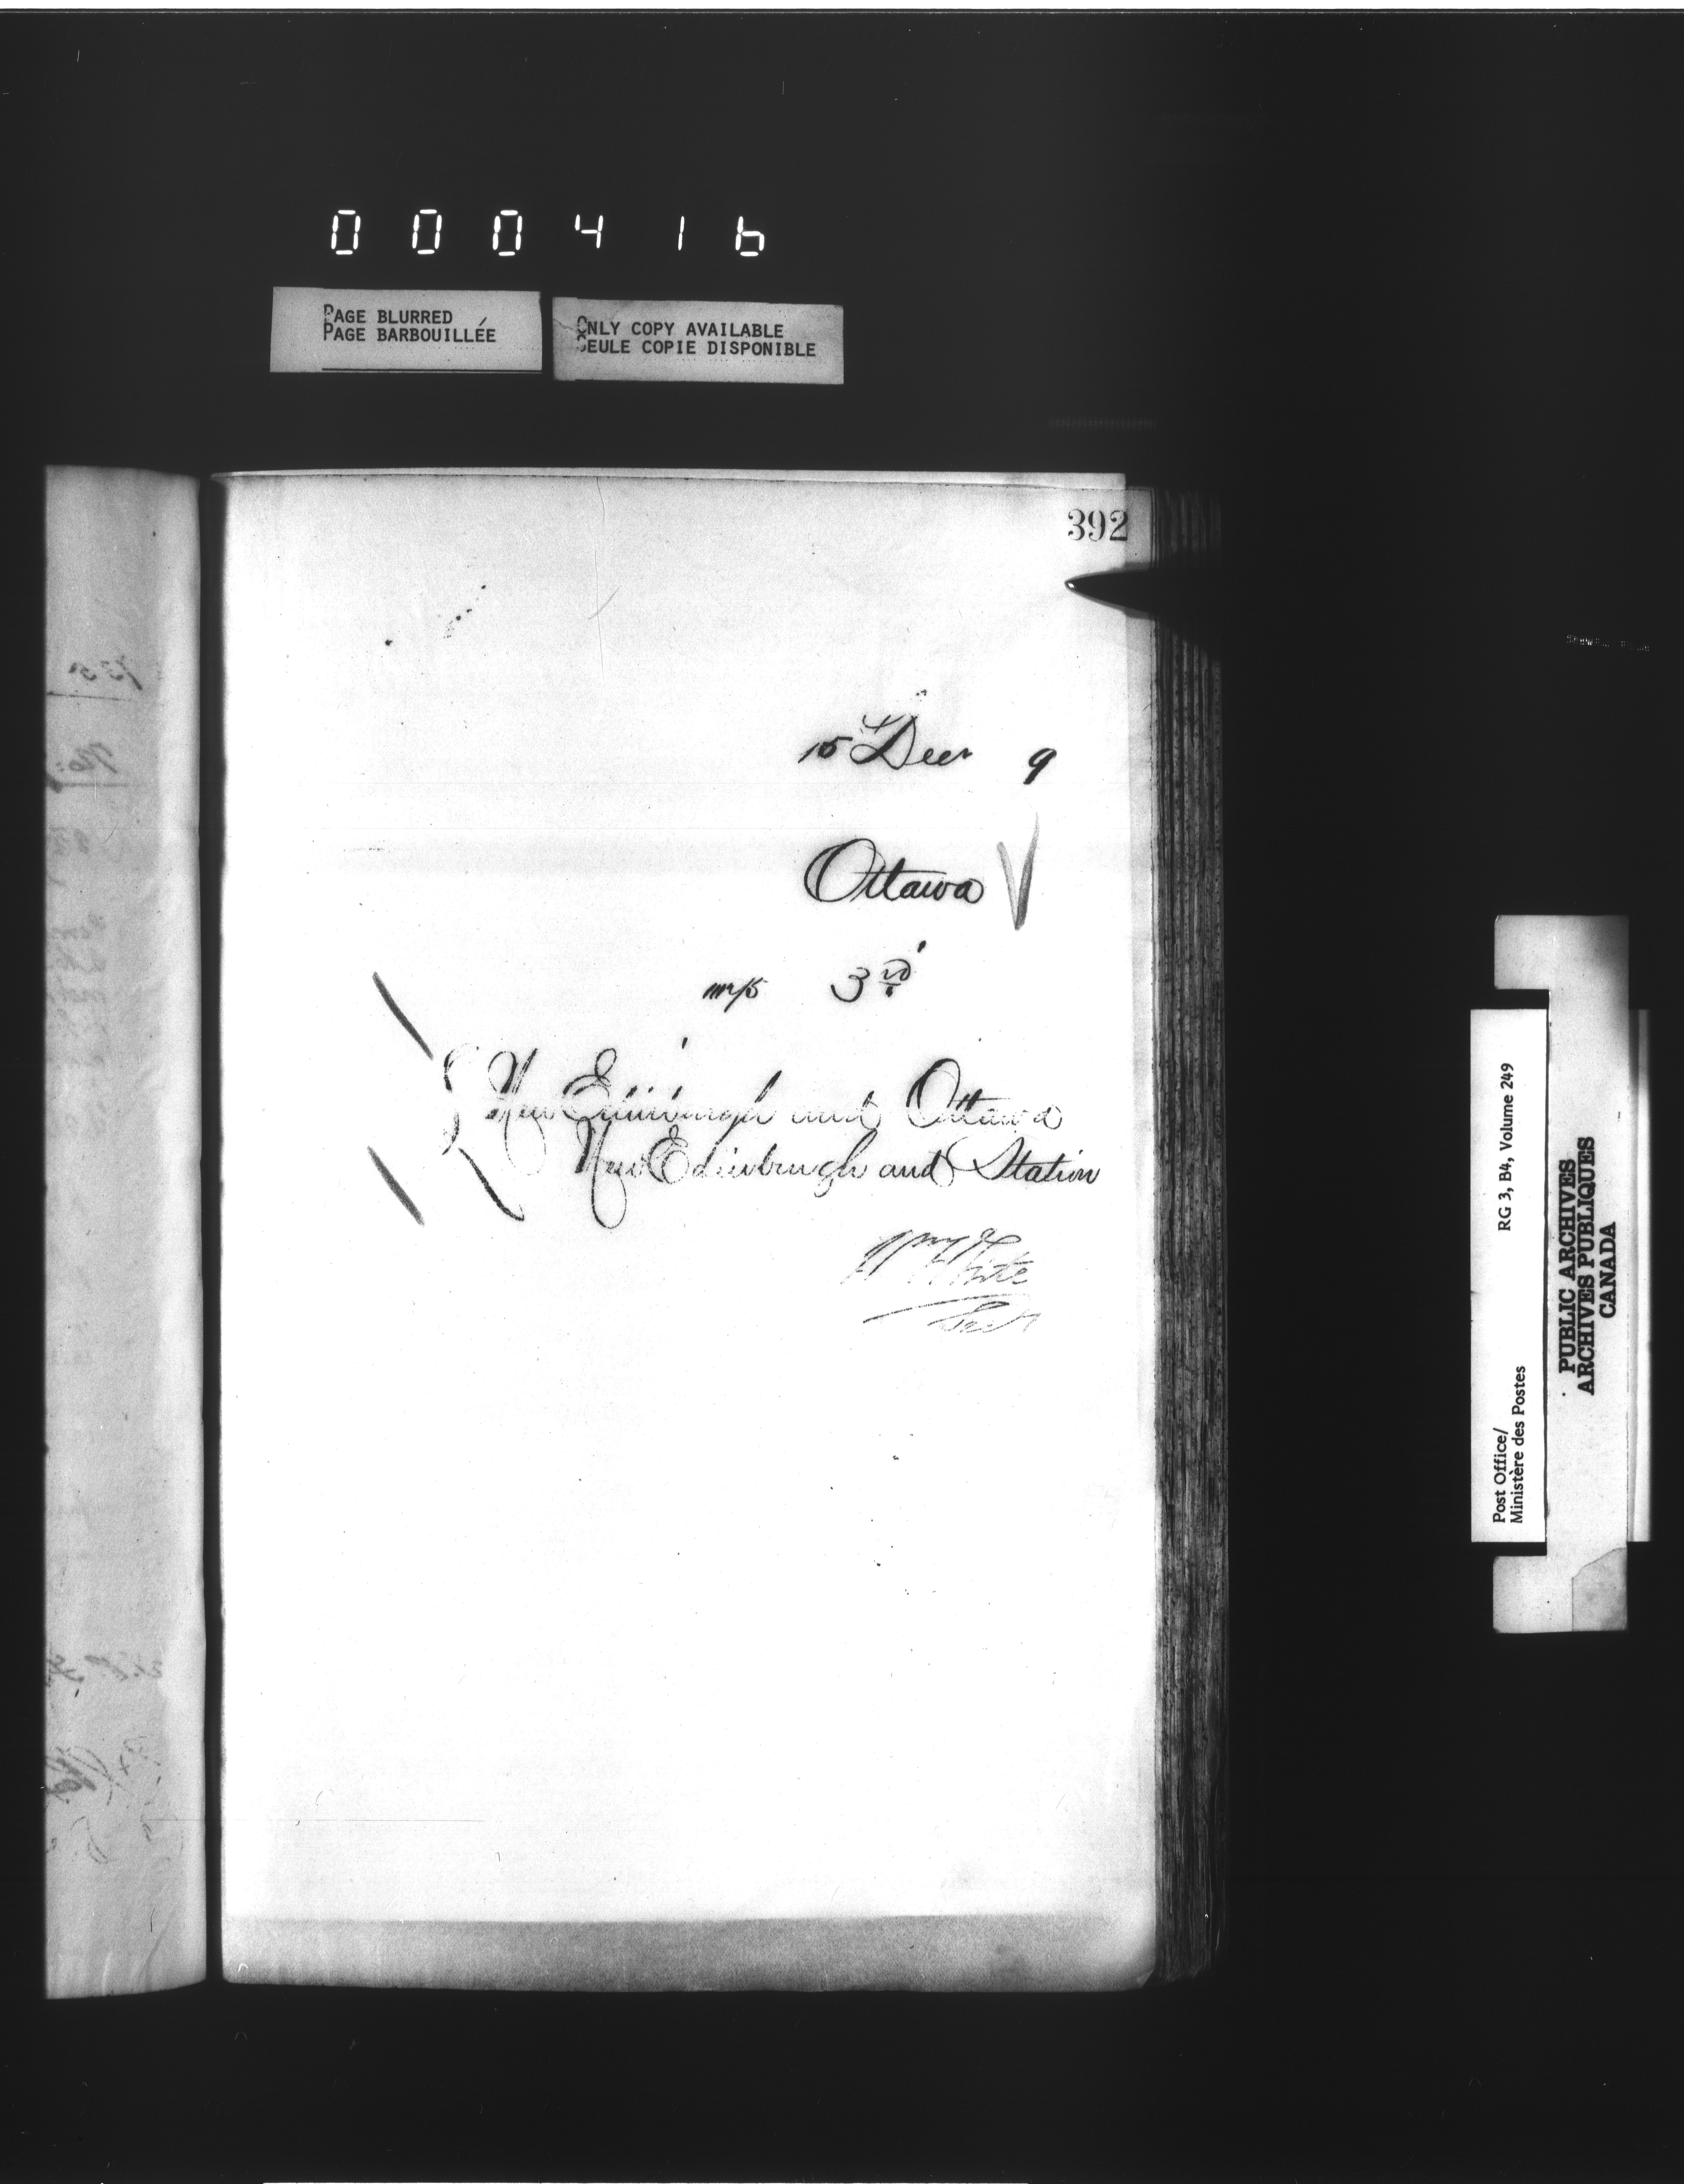 000416
PAGE BLURRED
PAGE BARBOUILLÉE
ONLY COPY AVAILABLE
SEULE COPIE DISPONIBLE
392
15 Decr 9
Ottawa
3rd
New Edinburgh and Ottawa
New Edinburgh and Station
Wm White
Secy
Post Office/
Ministère des Postes
RG 3, B4, Volume 249
PUBLIC ARCHIVES
ARCHIVES PUBLIQUES
CANADA